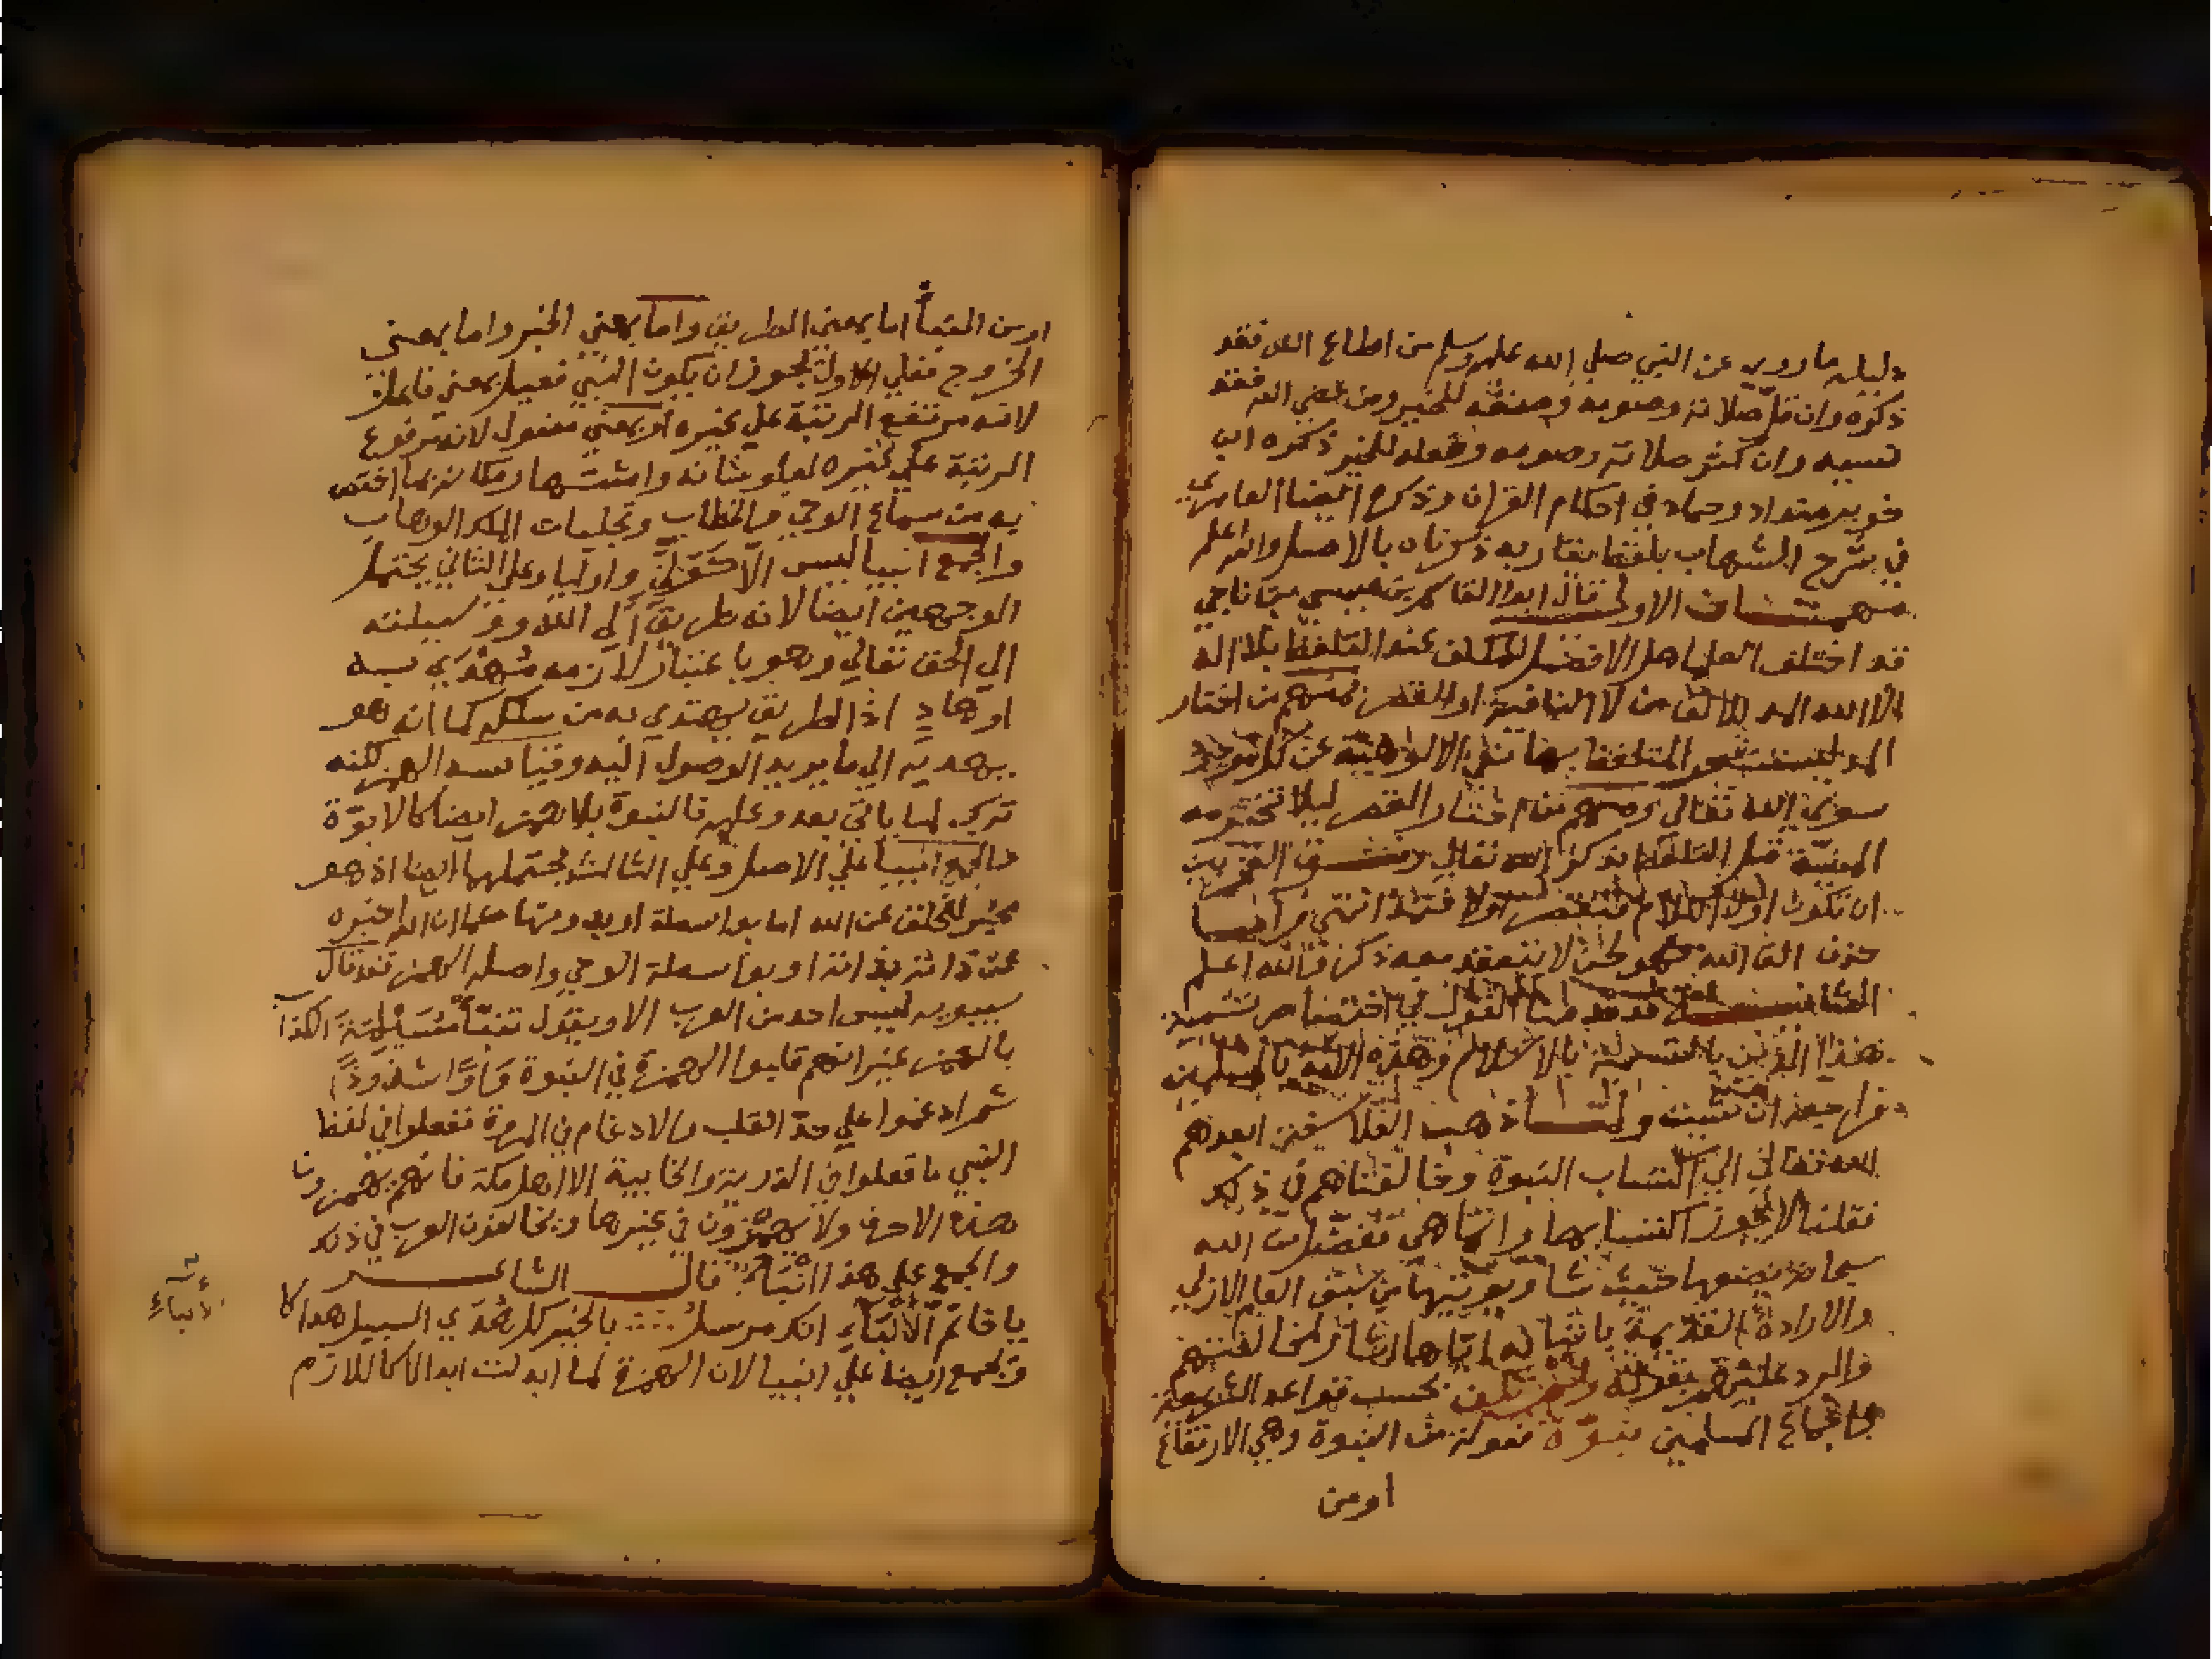 دليله ما روي عن النبي صلي الله عليه وسلم من اطاع الله فقد
ذكره وان قل صلاته وصومه وصنعه للخير ومن عصي الله فقد
نسيه وان كثر صلاته وصومه وفعله للخير ذكره ابن
خويز منداد وحماد في احكام القران وذكره ايضا العامري
في شرح الشهاب بلفظ مقاربه ذكرناه بالاصل والله اعلم
الاول قال ابوا القاسم بن عيسي بن ناجي
قد اختلف العلما هل الافضل للمكلف عند التلفظ بلا اله
الا الله المد للالف من لا النافية او القصر فمنهم من اختار
المد ليستشعر المتلفظ بها نفي الالوهية عن كل موجود
سوي الله تعالي ومنهم من اختار القصر ليلا تخترمه
المنية قبل التلفظ بذكر الله تعالي وفرق الفخر بين
ان تكون اول الكلام فتقصر اولا فتمد انتهي
حذف الف الله فهو لحن لا تنعقد معه ذكر فالله اعلم
قد القول في اختصاص تسمية
هذا الدين بالتسمية بالاسلام وهذه الامة بالمسلمين
فراجعه ان شيت ولما ذهب الفلاسفة ابعدهم
الله تعالي الي اكتساب النبوة وخالفناهم في ذلك
فقلنا لا يجوز اكتسابها وانما هي تفضل من الله
سبحانه يضعها حيث شا ويوتيها من سبق العلم الازلي
والارادة القديمة باتيانه اياها اشار لمخالفتهم
والرد عليهم بقوله ولم تكن بحسب قواعد الشريعة
واجماع المسلمين نبوة فعولة من النبوة وهي الارتفاع
او من
او من النبأ اما بمعني الطريق واما بمعني الخبر واما بمعني
الخروج فعلي الاول يجوز ان يكون النبي فعيل بمعني فاعل
لانه مرتفع الرتبة علي غيره او بمعني مفعول لانه مرفوع
الرتبة علي غيره لعلو شانه ومكانه بما اختص
به من سماع الوحي والخطاب وتجليات الملك الوهاب
والجمع انبيا ليس الا كتقي واوليا وعلي الثاني يحتمل
الوجهين ايضا لانه طريق الي الله ووسيلته
الي الحق تعالي وهو باعتبار لازمه مهتدي به
او هاد اذ الطريق يهتدي به من سلكه كما انه هو
يهديه الي ما يريد الوصول اليه وقياسه الهمز لكنه
ترك لما ياتي بعد وعليه فالنبوة بلا همز ايضا كالابوة
فالجمع انبيا علي الاصل وعلي الثالث يحتملهما ايضا اذ هو
مخبر للخلق عن الله اما بواسطة او بدونها كما ان الله اخبره
عن ذاته بذاته او بواسطة الوحي واصله الهمز فقد قال
سيبويه ليس احد من العرب الا ويقول تنبأ مسيلمة الكذاب
بالهمز غير انهم قلبوا الهمزة في النبوة واوا شذوذا
ثم ادغموا علي حد القلب والادغام في المروة ففعلوا في لفظ
النبي ما فعلوا في الذرية والخابية الا اهل مكة فانهم يهمزون
هذه الاحرف ولا يهمزون في غيرها ويخالفون العرب في ذلك
والجمع علي هذا انباء قال الشاعر
يا خاتم الأنباء انك مرسل بالخير كل هدي السبيل هداكا
ويجمع ايضا علي انبيا لان الهمزة لما ابدلت ابدالا كاللازم
الأنبآء